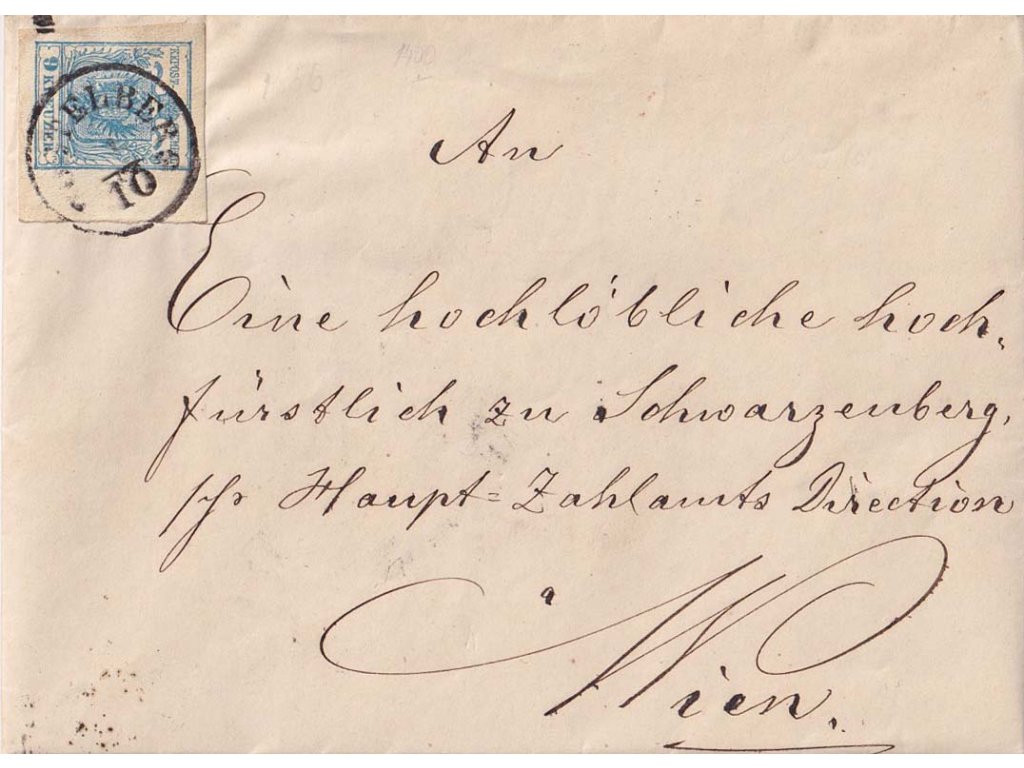 9 KREUZER
10
An
Eine hochlöbliche hoch-
fürstlich zu Schwarzenberg,
sche Haupt=Zahlamts Direction
a
Wien.